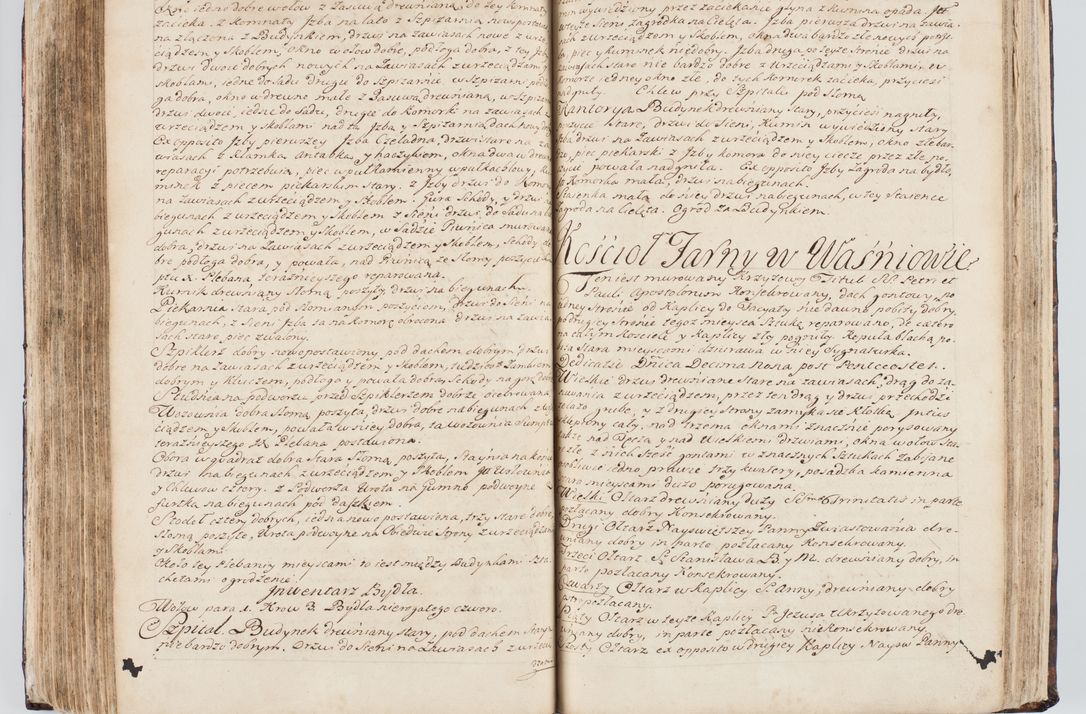 Okni, iedno dobre wołow z Zasuwą drewnianą, do tey komnaty
zacieka, z Komnaty Izba na lato z Szpizarnią nowo postaw
na złączona z Budynkiem, drzwi na zawiasach nowe z wrze
ciądzem y Skoblem, okno wołow dobre, podłoga dobra, z tey Izb
drzwi dwoie dobrych nowych na Zawiasach z wrzeciądzami y
Skoblami, iedne do Sadu drugie do Szpizarnie, w Szpizarni podło
ga dobra, okno w drewno małe z Zasuwą drewnianą, w Szpizarni
drzwi dwoie, iedne do Sadu, drugie do Komorki na Zawiasach
z wrzeciądzem y Skoblami nad tą Izbą y Szpizarnią, dach nowy dobry
Ex opposito Izby pierwszey Izba Czeladna, drzwi stare na za
wiasach z Klamką Antabką y haczykiem, okna dwa w drewno
reparacyi potrzebuią, piec wpułkamienny wpułkaflowy, ko
minek z piecem piekarskim Stary. z Izby drzwi do Komory
na zawiasach z wrzeciądzem y Skoblem. Gura Schody, y drzwi na
biegunach z wrzeciądzem y Skoblem z Sieni drzwi do Sadu na bie
gunach z wrzeciądzem y Skoblem, w Sadzie Piwnica murowana
dobra, drzwi na Zawiasach z wrzeciądzem y Skoblem, Schody do
bre podłoga dobra, y powała, nad Piwnicą ze Słomy poszycie
ptu X. Plebana teraznieyszego reparowana.
Kurnik drewniany Słomą poszyty drzwi na biegunach.
Piekarnia Stara pod Słomianem poszyciem, Drzwi do Sieni na
biegunach, z Sieni Izba ta na Komorę obrocona drzwi na zawia
sach stare, piec zwalony.
Szpiklerz dobry nowo postawiony pod dachem dobrym, drzwi
dobre na Zawiasach z wrzeciądzem y Skoblem, tudziesz Zamkiem
dobrym y Kluczem, podłogą y powałą dobrą, Schody na gorę dobre
Studnia na podworzu przed Szpiklerzem dobrze ocebrowana
Wozownia dobra Słomą poszyta, drzwi dobre na biegunach z wrze
ciądzem y Skoblem, powała w niey dobra, ta wozownia Sumptu
teraznieyszego JX Plebana postawiona.
Obora w quadrat dobra Stara Słomą poszyta, Staynia na konie
drzwi na biegunach z wrzeciądzem y Skoblem Wołownia
y Chlewow cztery. z Podworza Wrota na Gumno podwoyne y
furtka na biegunach pod daszkiem.
Stodoł cztery dobrych, iedna nowo postawiona, trzy stare dobre
Słomą poszyte, Wrota podwoyne na Obiedwie Strony z wrzeciądzami
y Skoblami.
Około tey Plebanii mieyscami to iest między Budynkami Szta
chetami ogrodzenie.
Jnwentarz Bydla.
Wołow para 1. Krow 3. Bydla nierogatego czworo.
Szpital. Budynek drewniany stary, pod dachem Starym
nie bardzo dobrym. Drzwi do Sieni na Zawiasach z wrzecią
rem wywiedziony przez zaciekanie glyna z kumina opada. Jest
w teyze Sieni zagrodka na Cielęta. Izba pierwsza drzwi na zawia
sach z wrzeciądzem y Skoblem, okna dwa bardzo złe nowych potrze
ba, piec y kuminek niedobry. Izba druga po teyze Stronie drzwi na
zawiasach stare nie bardzo dobre z Wrzeciądzami y Skoblami, w
Komorze iedney okno złe, do tych Komorek zacieka, przyciesi
nadgniły. Chlew przy Szpitalu pod Słomą
Kantorya Budynek drewniany Stary, przyciesi nagniły,
poszycie Stare, drzwi do Sieni, Kumin wywiedziony stary
Izba drzwi na Zawiasach z wrzeciądzem y Skoblem, okno złe bar
dzo, piec piekarski z Izby komora do niey ciecze przez złe po
szycie powała nadgniła. Ex opposito Izby Zagroda na bydło,
y Komorka mała, drzwi na biegunach.
Stasenka mała do niey drzwi na biegunach, w tey Stasence
zagroda na Cielęta. Ogrod za Budynkiem.
Kościoł Farny w Waśniowie
Ten iest murowany Krzyzowy Tituli SS. Petri et
Pauli Apostolorum Konsekrowany, dach gontowy, po
iedney Stronie od Kaplicy do Facyaty nie dawno pobity dobry,
po drugiey Stronie tegoz mieysca Sztukę reparowano, de cætero
na całym Kosciele y Kaplicy zły pognily. Kopuła blachą po
bita Stara mieyscami dziurawa w niey Sygnaturka.
Dedicatio Dnica Decima Nona post Pentecosten.
Wielkie drzwi drewniane Stare na zawiasach, drąg do za
suwania z wrzeciądzem, przez ten drąg y drzwi przechodzi
żelazo grube, y z drugiey Strony zamyka sie Klotką intus
sklepiony cały, nad trzema oknami znacznie porysowany
także nad Tęczą y nad Wielkiemi drzwiami, okna wołow sta
re złe, z nich Sześć gontami w znacznych Sztukach zabijane
osobliwie iedno prawie trzy kwatery, posadzka kamienna
Stara mieyscami duzo porugowana.
Wielki Ołtarz drewniany duzy SSmæ Trinitatis in parte
pozłacany dobry Konsekrowany.
Drugi Ołtarz Nayswiętszey Panny Zwiastowania dre
wniany dobry in parte pozłacany Konsekrowany.
Trzeci Ołtarz S. Stanisława B. y M. drewniany dobry, in
parte pozłacany Konsekrowany.
Czwarty Ołtarz w Kaplicy S. Anny, drewniany dobry
extr pozłacany.
Piąty Ołtarz w teyze Kaplicy P. Jezusa Ukrzyżowanego dre
wniany dobry, in parte pozłacany niekonsekrowany.
Szosty Ołtarz ex opposito w drugiey Kaplicy Nayśw Panny